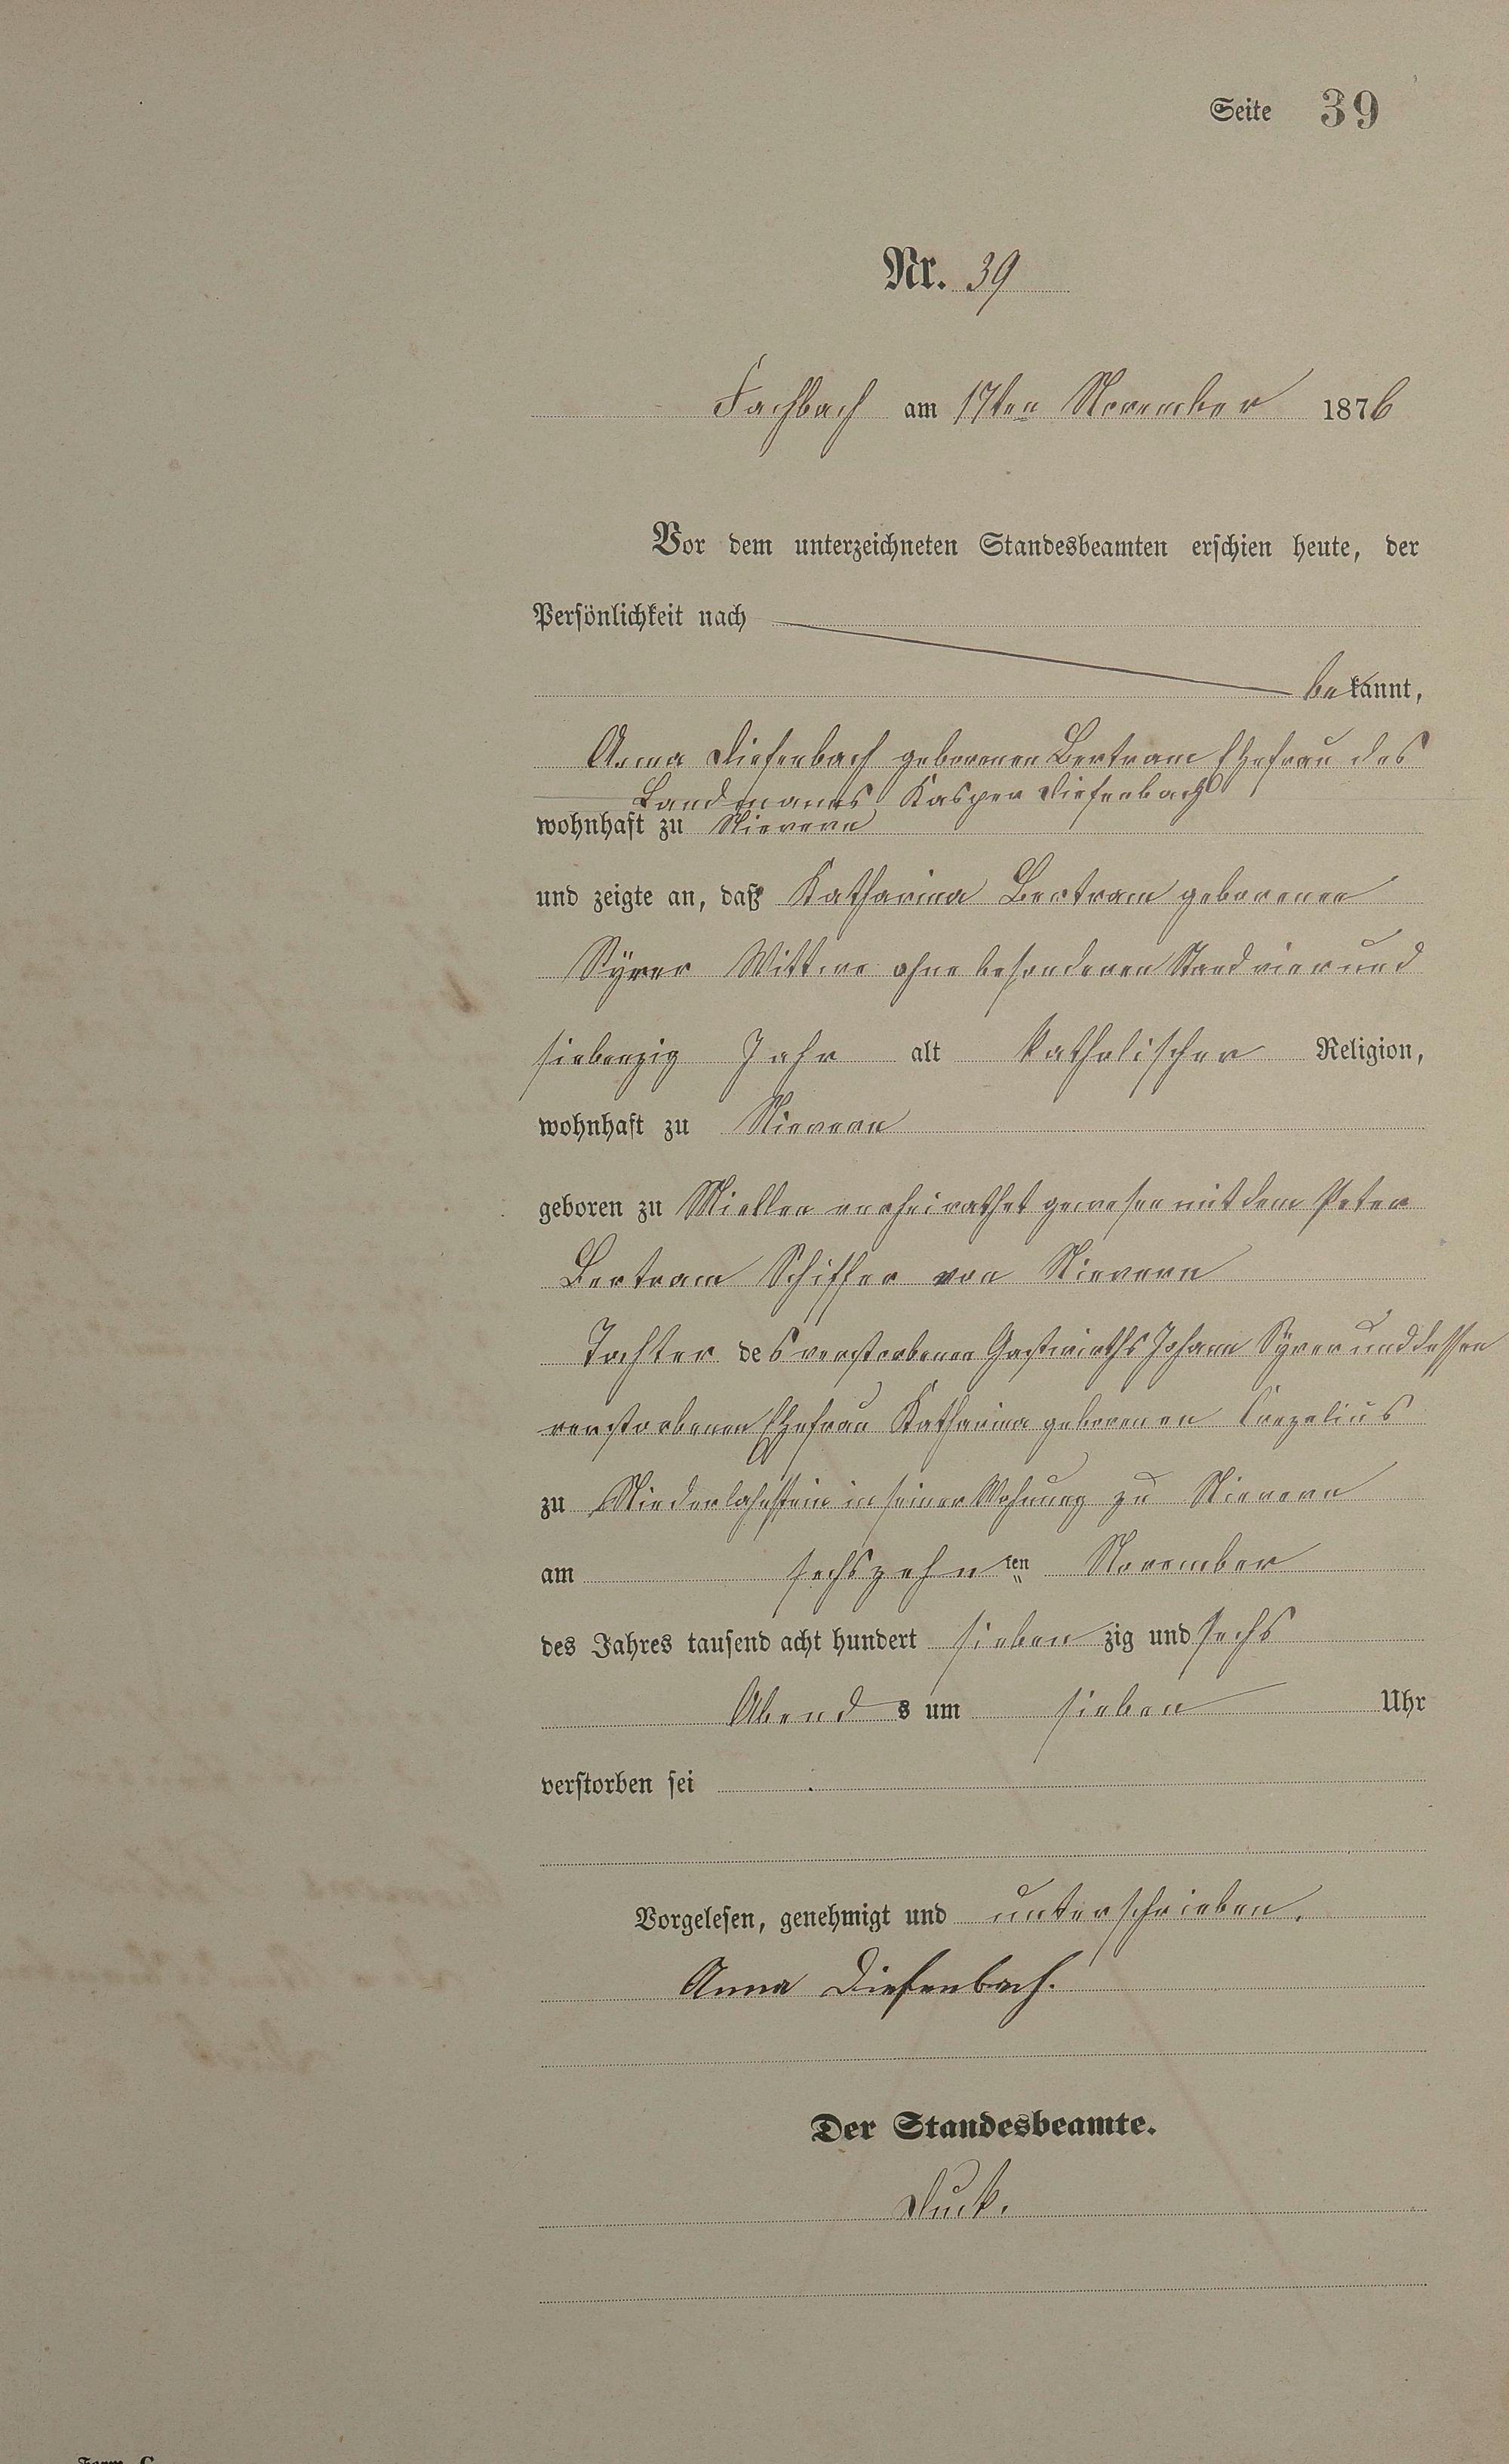 Seite 39
Nr. 39
Fachbach am 17ten November 1876
Vor dem unterzeichneten Standesbeamten erschien heute, der
Persönlichkeit nach
bekannt,
Anna Diefenbach geborenen Bertram Ehefrau des
Landmanns Kasper Diefenbach
wohnhaft zu Nievern
und zeigte an, daß Katharina Bertram geborenen
Syrer Wittwe ohne besonderen Stand vier und
siebenzig Jahr alt katholischer Religion,
wohnhaft zu Nievern
geboren zu Miellen verheirathet gewesen mit dem Peter
Bertram Schiffer von Nievern
Tochter des verstorbenen Gastwirths Johann Syrer und dessen
verstorbenen Ehefrau Katharina geborenen Crezelius
zu Niederlahnstein in seiner Wohnung zu Nievern
am sechszehnten November
des Jahres tausend acht hundert siebenzig und sechs
Abends um sieben Uhr
verstorben sei
Vorgelesen, genehmigt und unterschrieben.
Anna Diefenbach.
Der Standesbeamte.
Duck.